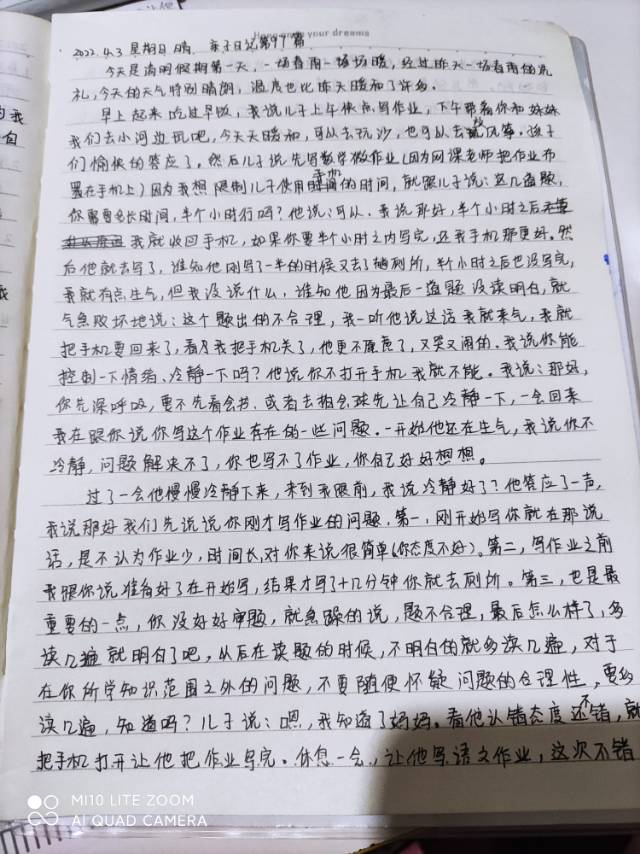 Hang onto your dreams
2022.4.3 星期日 晴 亲子日记第97篇
今天是清明假期第一天,一场春雨一场暖,经过昨天一场春雨的洗
礼,今天的天气特别晴朗,温度也比昨天暖和了许多。
早上起来吃过早饭,我说儿子上午快点写作业,下午带着你和妹妹
我们去小河边玩吧,今天天暖和,可以去玩沙,也可以去放风筝。孩子
们愉快的答应了。然后儿子说先写数学微作业(因为网课老师把作业布
置在手机上)因为我想限制儿子使用手机的时间,就跟儿子说:这几道题,
你需要多长时间,半个小时行吗?他说:可以。我说那好,半个小时之后
我就收回手机,如果你要半个小时之内写完,还我手机那更好。然
后他就去写了,谁知他刚写了一半的时候又去了趟厕所,半个小时之后也没写完,
我就有点生气,但我没说什么,谁知他因为最后一道题没读明白,就
气急败坏地说:这个题出的不合理,我一听他说这话我就来气,我就
把手机要回来了,看我把手机关了,他更不愿意了,又哭又闹的。我说你能
控制一下情绪,冷静一下吗?他说你不打开手机我就不能。我说:那好,
你先深呼吸,要不先看会书,或者去拍会球先让自己冷静一下,一会回来
我在跟你说你写这个作业存在的一些问题。一开始他还在生气,我说你不
冷静,问题解决不了,你也写不了作业,你自己好好想想。
过了一会他慢慢冷静下来,来到我跟前,我说冷静好了?他答应了一声,
我说那好我们先说说你刚才写作业的问题,第一,刚开始写你就在那说
话,是不认为作业少,时间长,对你来说很简单(你态度不好)。第二,写作业之前
我跟你说准备好了在开始写,结果才写了十几分钟你就去厕所。第三,也是最
重要的一点,你没好好审题,就急躁的说,题不合理,最后怎么样了,多
读几遍就明白了吧,从后在读题的时候,不明白的就多读几遍,对于
在你所学知识范围之外的问题,不要随便怀疑问题的合理性,要多
读几遍,知道吗?儿子说:嗯,我知道了妈妈。看他认错态度还不错,就
把手机打开让他把作业写完。休息一会,让他写语文作业,这次不错
MI 10 LITE ZOOM
AI QUAD CAMERA